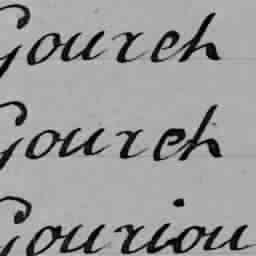 Gourch
Gourch
Gouriou